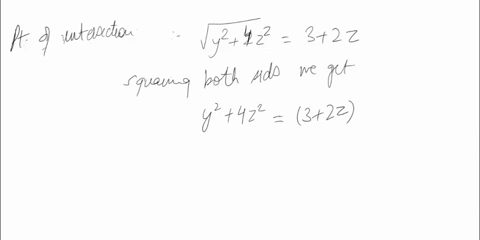 Pt. of intersection :- √(y²+4z²) = 3+2z
squaring both sids we get
y²+4z² = (3+2z)